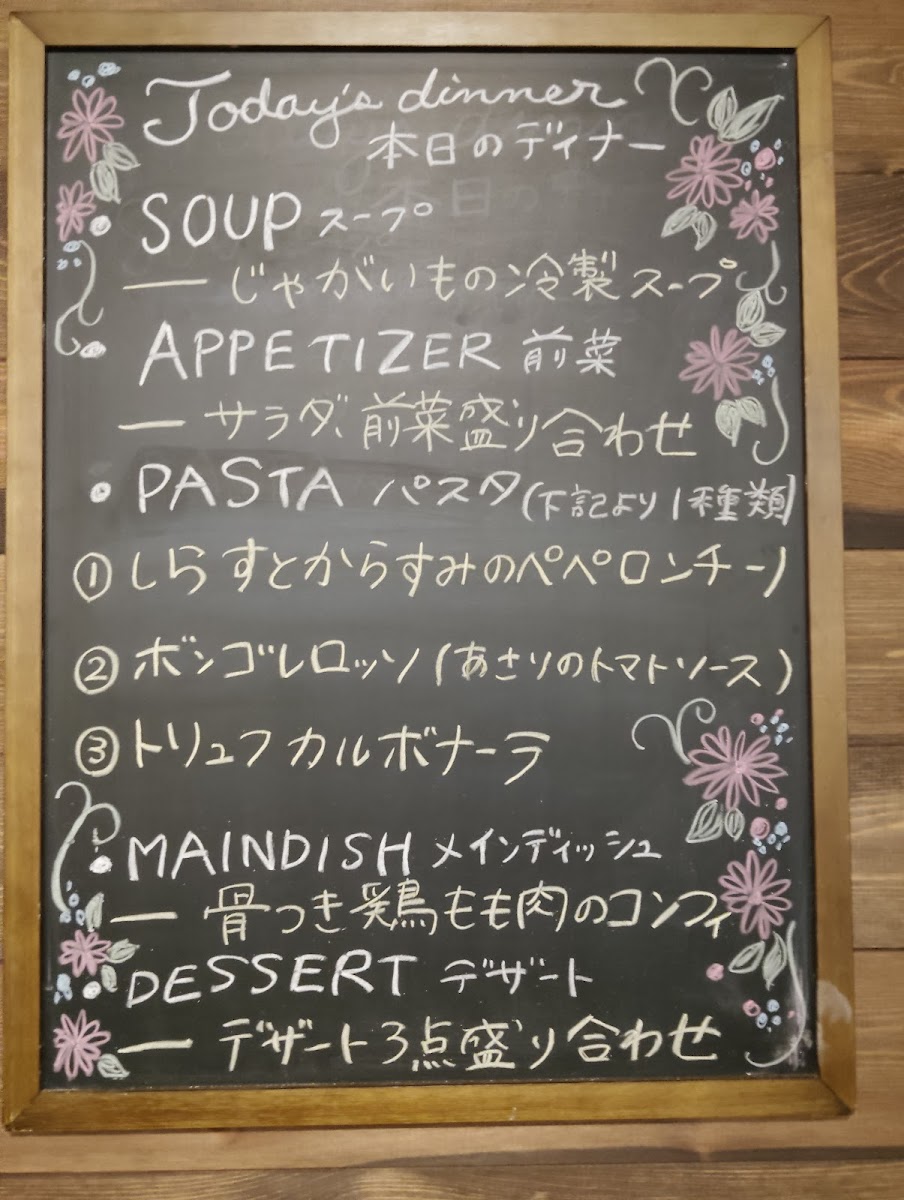 Today's dinner
本日のディナー
SOUP スープ
― じゃがいもの冷製スープ
・APPETIZER 前菜
― サラダ、前菜盛り合わせ
・PASTA パスタ(下記より1種類)
① しらすとからすみのペペロンチーノ
② ボンゴレロッソ(あさりのトマトソース)
③ トリュフカルボナーラ
・MAINDISH メインディッシュ
― 骨つき鶏もも肉のコンフィ
・DESSERT デザート
― デザート3点盛り合わせ